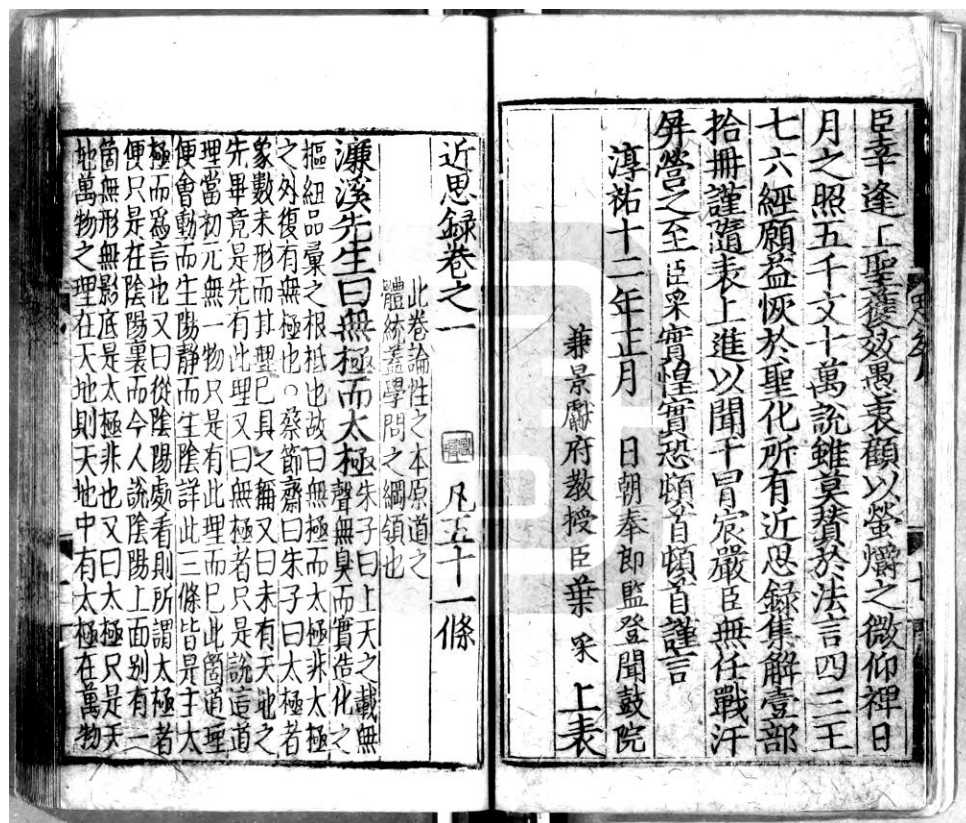 臣幸逢上聖襃效愚衷顧以螢爝之微仰裨日
月之照五千文十萬說雖莫賛於法言四三王
七六經願益恢於聖化所有近思録集解壹部
拾冊謹隨表上進以聞干冒宸嚴臣無任戰汗
屏營之至臣采實惶實恐頓首頓首謹言
淳祐十二年正月 日朝奉郎監登聞鼓院
兼景獻府教授臣葉 采 上表
近思録卷之一 凡五十一條
此卷論性之本原道之
體統蓋學問之綱領也
濂溪先生曰無極而太極
朱子曰上天之載無
聲無臭而實造化之
樞紐品彙之根柢也故曰無極而太極非太極
之外復有無極也○蔡節齋曰朱子曰太極者
象數未形而其理已具之稱又曰未有天地之
先畢竟是先有此理又曰無極者只是說這道
理當初元無一物只是有此理而已此箇道理
便會動而生陽靜而生陰詳此三條皆是主太
極而爲言也又曰從陰陽處看則所謂太極者
便只是在陰陽裏而今人說陰陽上面别有一
箇無形無影底是太極非也又曰太極只是天
地萬物之理在天地則天地中有太極在萬物